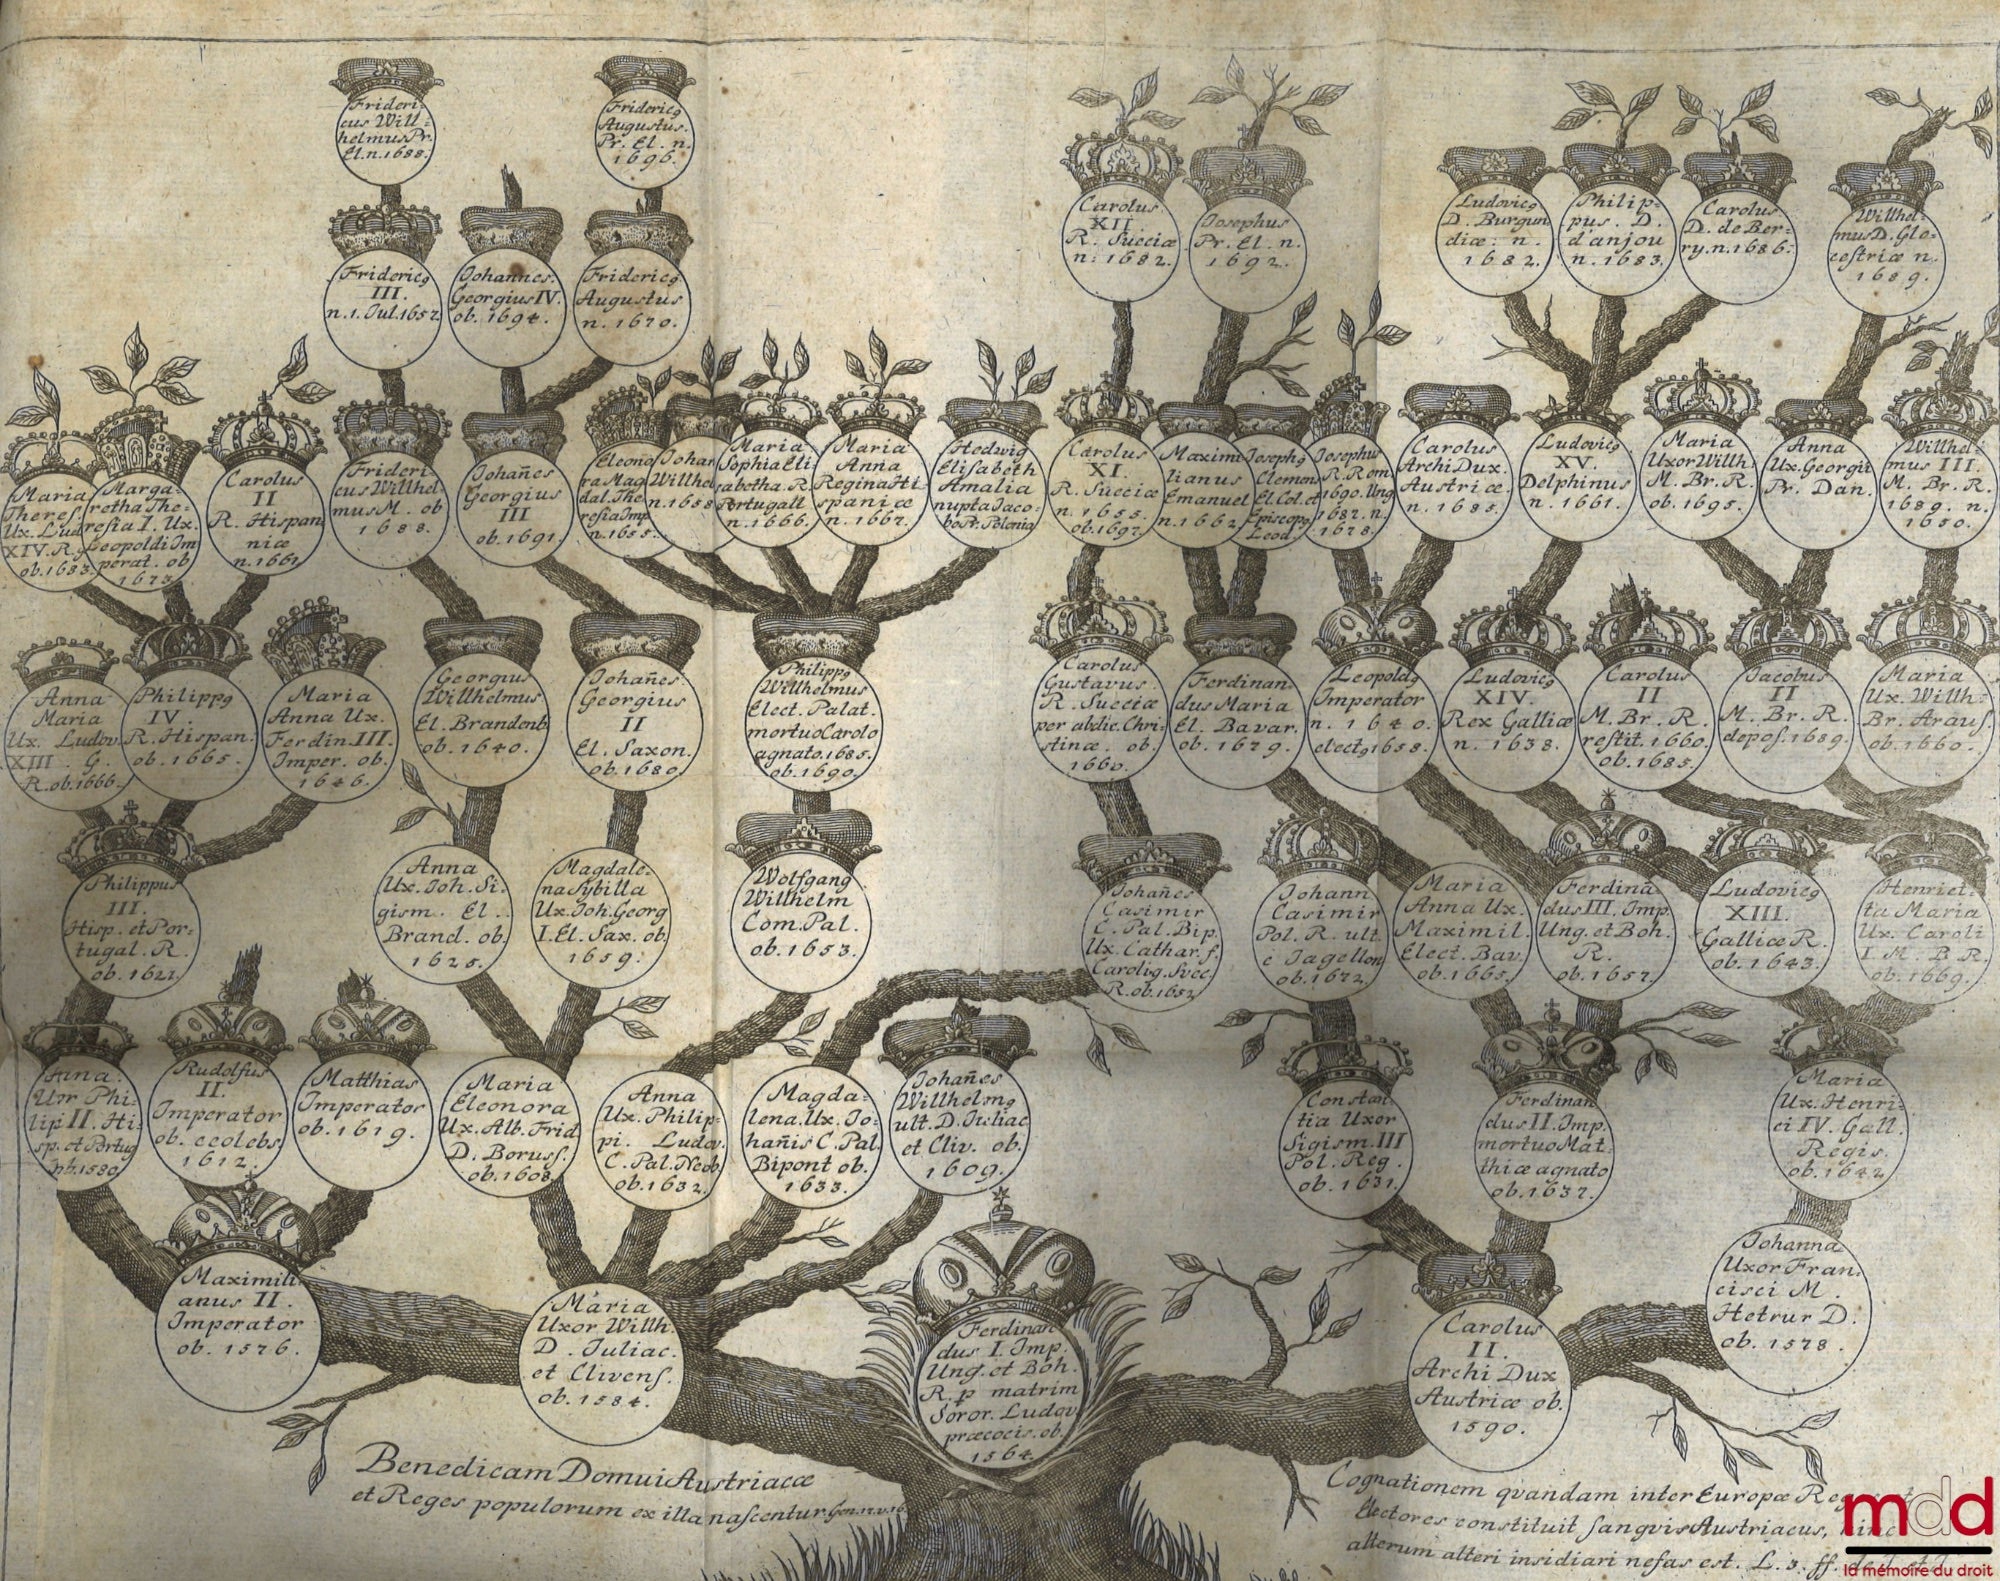 Frideri-
cus Will-
helmus Pr.
El. n. 1688.
Fridericg
Augustus.
Pr. El. n.
1696.
Carolus
XII
R. Sueciæ
n. 1682.
Iosephus
Pr. El. n.
1692.
Ludovicg
D. Burgun
diæ. n.
1682.
Philip-
pus. D.
d'anjou
n. 1683.
Carolus
D. de Ber-
ry. n. 1686.
Willhel-
mus D. Glo-
cestriæ n.
1689.
Fridericg
III.
n. 1. Iul. 1657
Iohannes.
Georgius IV.
ob. 1694.
Fridericg
Augustus
n. 1670.
Maria
Theres.
Ux. Lud
XIV. R. g
ob. 1683.
Marga-
retha The-
resia I. Ux.
Leopoldi Im
perat. ob
1673.
Carolus
II
R. Hispan
niæ
n. 1661
Frideri
cus Willhel-
mus M. ob
1688.
Iohañes
Georgius
III
ob. 1691.
Eleono
ra Mag
dal. The
resia Imp
n. 1655.
Iohan
Willhel
n. 1658
Maria
Sophia Eli-
sabetha. R.
Portugall
n. 1666.
Maria
Anna
Regina Hi-
spaniæ
n. 1667.
Hedwig
Elisabeth
Amalia
nupta Iaco-
bo Pr. Polonia
Carolus
XI.
R. Sueciæ
n. 1655.
ob. 1697.
Maximi
lianus
Emanuel
n. 1662
Iosephg
Clemen
El. Col. et
Episcopg
Leod.
Iosephus
R. Rom
1690. Ung
1687. n.
1678.
Carolus
Archi Dux.
Austriæ.
n. 1685.
Ludovicg
XV.
Delphinus
n. 1661.
Maria
Uxor Willh.
M. Br. R.
ob. 1695.
Anna
Ux. Georgii
Pr. Dan.
Willhel-
mus III.
M. Br. R.
1689. n.
1650.
Anna
Maria
Ux. Ludov
XIII. G.
R. ob. 1666.
Philippg
IV.
R. Hispan.
ob. 1665.
Maria
Anna Ux.
Ferdin. III.
Imper. ob.
1646.
Georgius
Willhelmus
El. Brandenb
ob. 1640.
Iohañes
Georgius
II
El. Saxon.
ob. 1680.
Philippg
Willhelmus
Elect. Palat.
mortuo Carolo
agnato. 1685.
ob. 1690.
Carolus
Gustavus.
R. Sueciæ
per abdic. Chri-
stinæ. ob.
1660.
Ferdinan-
dus Maria
El. Bavar.
ob. 1679.
Leopoldg
Imperator
n. 1640.
electg 1658.
Ludovicg
XIV.
Rex Galliæ
n. 1638.
Carolus
II
M. Br. R.
restit. 1660.
ob. 1685.
Iacobus
II
M. Br. R.
depos. 1689.
Maria
Ux. Willh-
Br. Araus.
ob. 1660.
Philippus
III.
Hisp. et Por-
tugal. R.
ob. 1621.
Anna
Ux. Ioh. Si-
gism. El.
Brand. ob.
1625.
Magdale-
na Sybilla
Ux. Ioh. Georg
I. El. Sax. ob.
1659.
Wolfgang
Willhelm
Com. Pal.
ob. 1653.
Iohañes
Casimir
C. Pal. Bip.
Ux. Cathar. f.
Carolig. Svec
R. ob. 1652
Iohann
Casimir
Pol. R. ult
e Iagellon
ob. 1672.
Maria
Anna Ux.
Maximil.
Elect. Bav.
ob. 1665.
Ferdinā-
dus III. Imp.
Ung. et Boh.
R.
ob. 1657.
Ludovicg
XIII.
Galliæ R.
ob. 1643.
Henriet-
ta Maria
Ux. Caroli
I. M. B. R.
ob. 1669.
Anna.
Uxr Phi-
lip II. Hi-
sp. et Portug
ob. 1580.
Rudolfus
II.
Imperator
ob. cœlebs.
1612.
Matthias
Imperator
ob. 1619.
Maria
Eleonora
Ux. Alb. Frid
D. Boruss.
ob. 1608.
Anna
Ux. Philip-
pi. Ludov.
C. Pal. Neob.
ob. 1632.
Magda-
lena. Ux. Io-
hañis C. Pal
Bipont ob.
1633.
Iohañes
Willhelmg
ult. D. Iuliac
et Cliv. ob.
1609.
Constan-
tia Uxor
Sigism. III
Pol. Reg.
ob. 1631.
Ferdinan
dus II. Imp.
mortuo Mat-
thiæ agnato
ob. 1637.
Maria
Ux. Henri-
ci IV. Gall.
Regis.
ob. 1642
Maximili-
anus II.
Imperator
ob. 1576.
Maria
Uxor Willh.
D. Iuliac.
et Clivens.
ob. 1584.
Ferdinan
dus I. Imp.
Ung. et Boh.
R. p matrim
Soror. Ludov
præcocis. ob.
1564.
Carolus
II.
Archi Dux
Austriæ ob.
1590.
Iohanna
Uxor Fran-
cisci M.
Hetrur D.
ob. 1578.
Benedicam Domui Austriacæ
et Reges populorum ex illa nascentur. Gen. 17. v. 16
Cognationem qvandam inter Europæ Reges et
Electores constituit sangvis Austriacus, hinc
alterum alteri insidiari nefas est. L. 3. ff. de I. et I.
mdd
la mémoire du droit